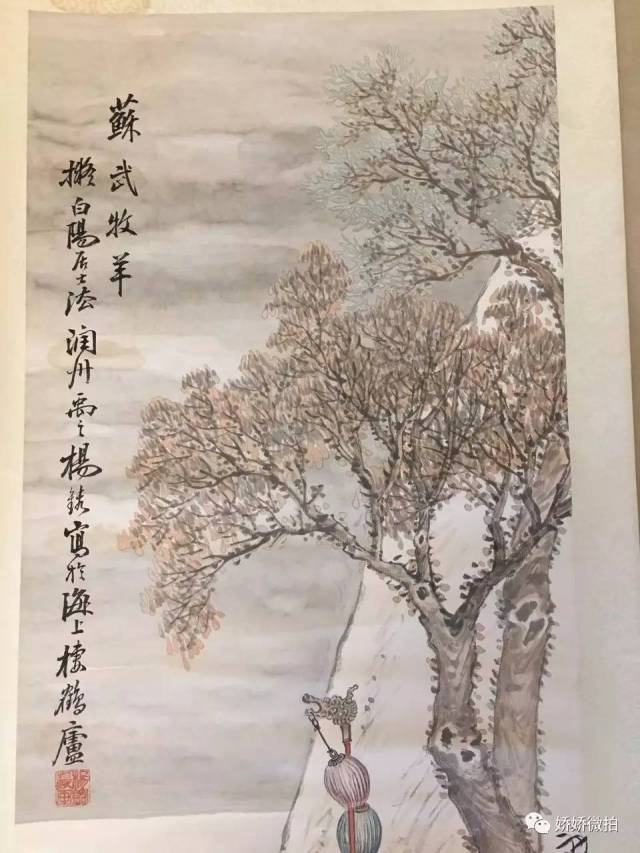 蘇武牧羊
擬白陽居士法潤州禹之楊錂寫於海上棲鶴廬
娇娇微拍